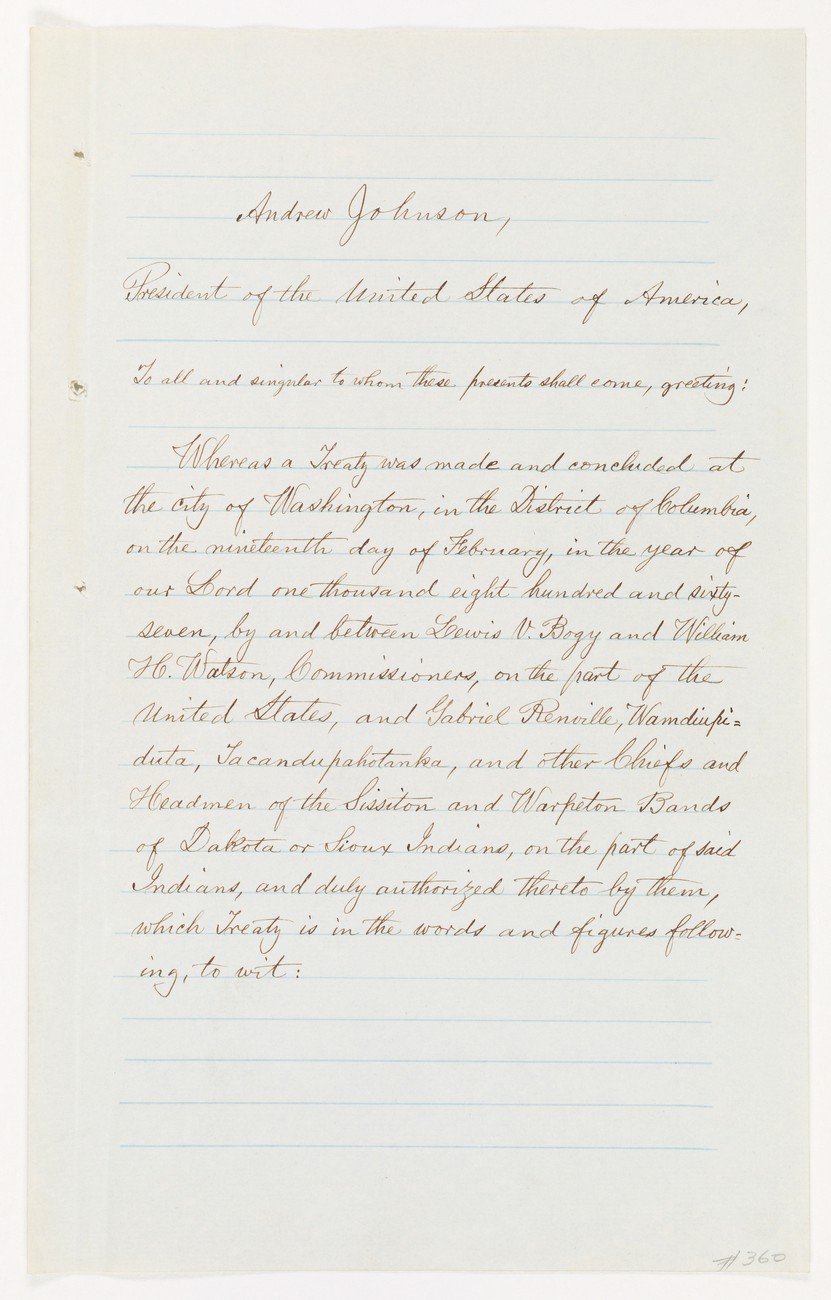 Andrew Johnson,
President of the United States of America,
To all and singular to whom these presents shall come, greeting:
Whereas a Treaty was made and concluded at
the city of Washington, in the District of Columbia,
on the nineteenth day of February, in the year of
our Lord one thousand eight hundred and sixty-
seven, by and between Lewis V. Bogy and William
H. Watson, Commissioners, on the part of the
United States, and Gabriel Renville, Wamdiupi=
duta, Tacandupahotanka, and other Chiefs and
Headmen of the Sissiton and Warpeton Bands
of Dakota or Sioux Indians, on the part of said
Indians, and duly authorized thereto by them,
which Treaty is in the words and figures follow=
ing, to wit:
#360